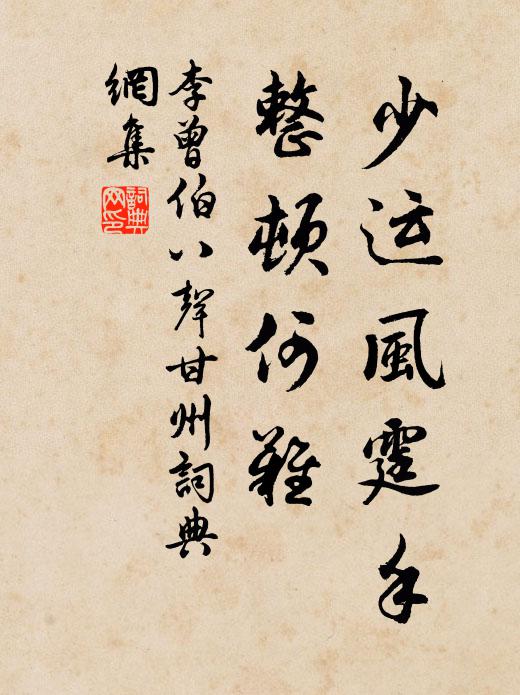 少运風霆手
整頓何難
李曾伯八聲甘州詞典
網集
詞典
网印